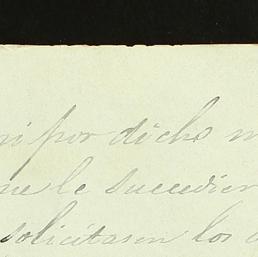 ni por dicho m
ue le succedier
solicitasen los